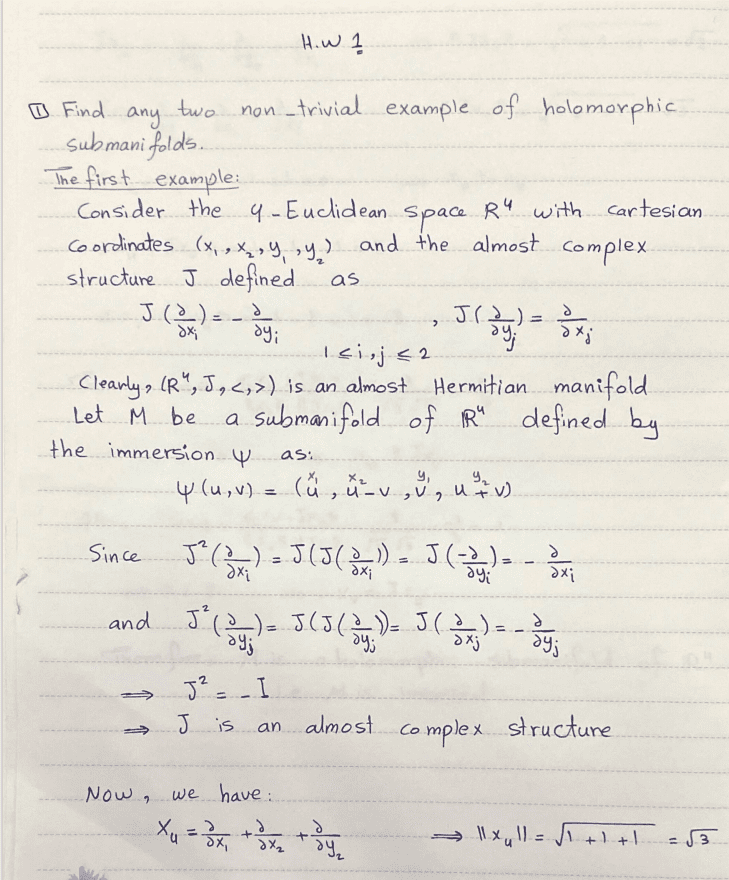 H.W 1
① Find any two non-trivial example of holomorphic
submanifolds.
The first example:
Consider the 4-Euclidean space R⁴ with cartesian
coordinates (x₁, x₂, y₁, y₂) and the almost complex
structure J defined as
J(∂/∂xᵢ) = -∂/∂yᵢ , J(∂/∂yⱼ) = ∂/∂xⱼ
1 ≤ i, j ≤ 2
Clearly, (R⁴, J, <,>) is an almost Hermitian manifold
Let M be a submanifold of R⁴ defined by
the immersion ψ as:
x₁ x₂ y₁ y₂
ψ(u,v) = (u, u-v, v, u+v)
Since J²(∂/∂xᵢ) = J(J(∂/∂xᵢ)) = J(-∂/∂yᵢ) = -∂/∂xᵢ
and J²(∂/∂yⱼ) = J(J(∂/∂yⱼ)) = J(∂/∂xⱼ) = -∂/∂yⱼ
⟹ J² = -I
⟹ J is an almost complex structure
Now, we have:
Xᵤ = ∂/∂x₁ + ∂/∂x₂ + ∂/∂y₂ ⟹ ||xᵤ|| = √(1+1+1) = √3